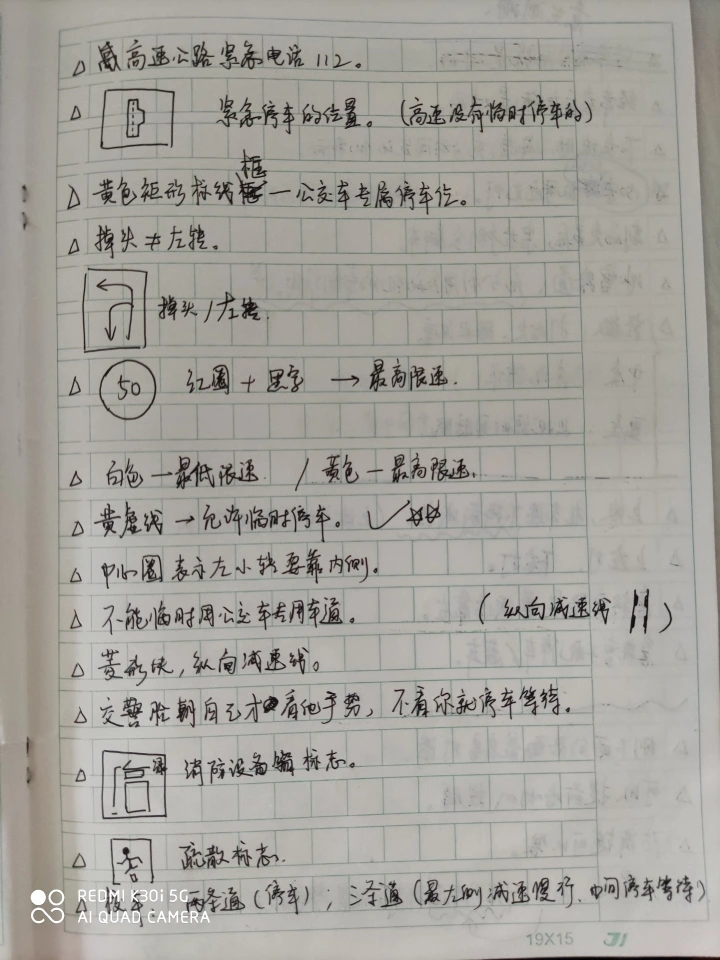 △ 高速公路紧急电话 112。
△ 紧急停车的位置。（高速没有临时停车的）
框
△ 黄色矩形标线 — 公交车专属停车位。
△ 掉头 ≠ 左转。
掉头 / 左转.
△ 50 红圈 + 黑字 → 最高限速.
△ 白色 — 最低限速 / 黄色 — 最高限速.
△ 黄虚线 → 允许临时停车。 ✓
△ 中心圈表示左小转要靠内侧。
△ 不能临时用公交车专用车道。 （纵向减速线 ）
△ 菱形块，纵向减速线。
△ 交警脸朝自己才看他手势，不看你就停车等待。
△ 消防设备 标志。
△ 疏散标志.
校车： 两条道（停车）；三条道（最左侧减速慢行、中间停车等待）
REDMI K30i 5G
AI QUAD CAMERA
19X15